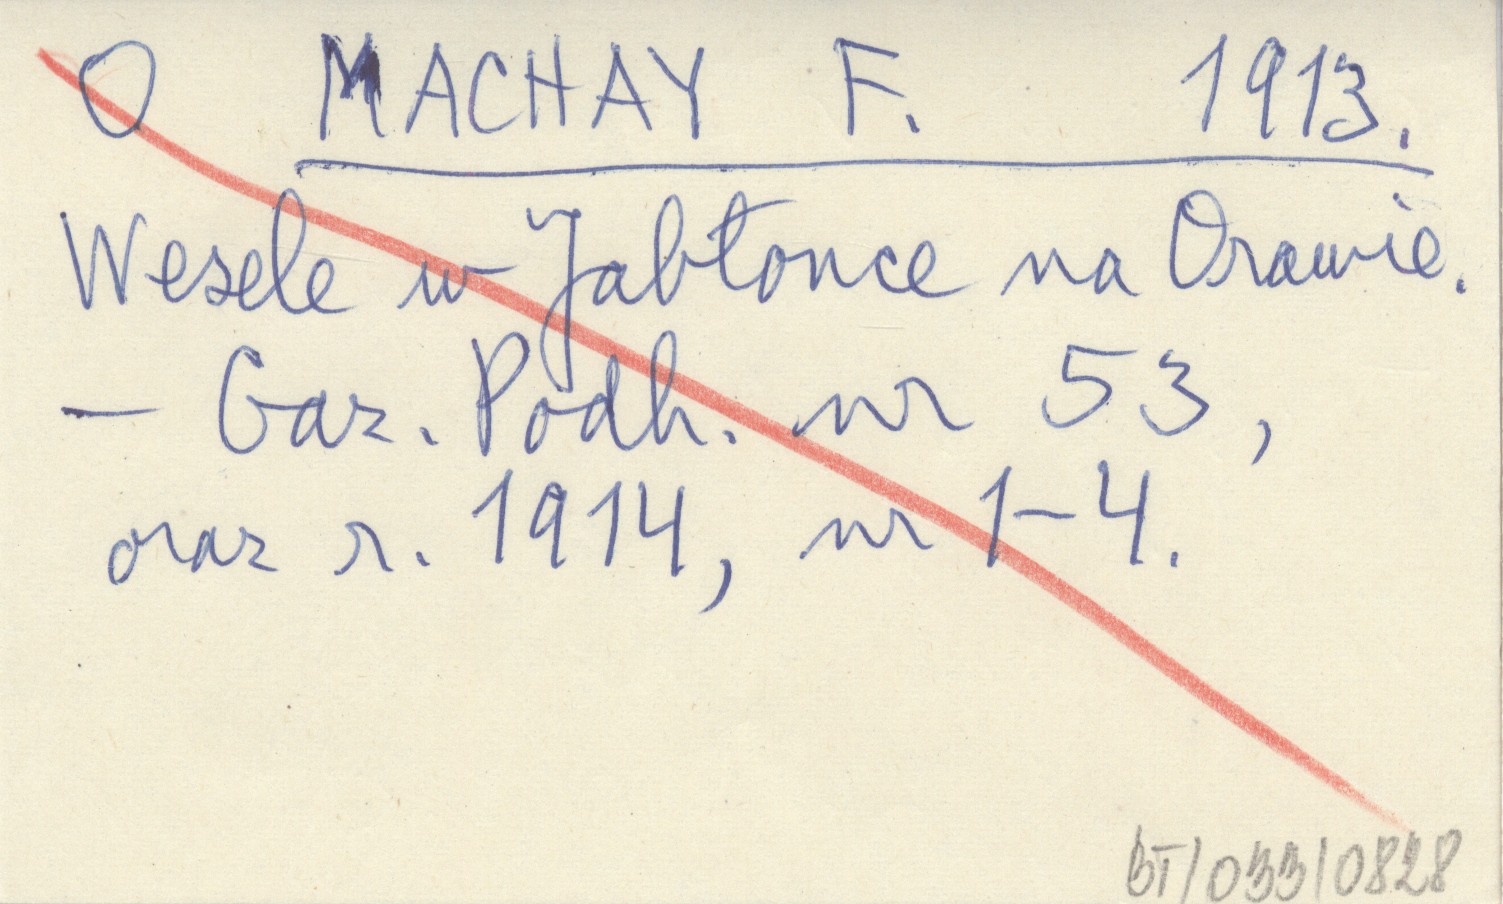 O MACHAY F. 1913.
Wesele w Jabłonce na Orawie.
— Gaz. Podh. nr 53,
oraz r. 1914, nr 1-4.
BT/033/0828